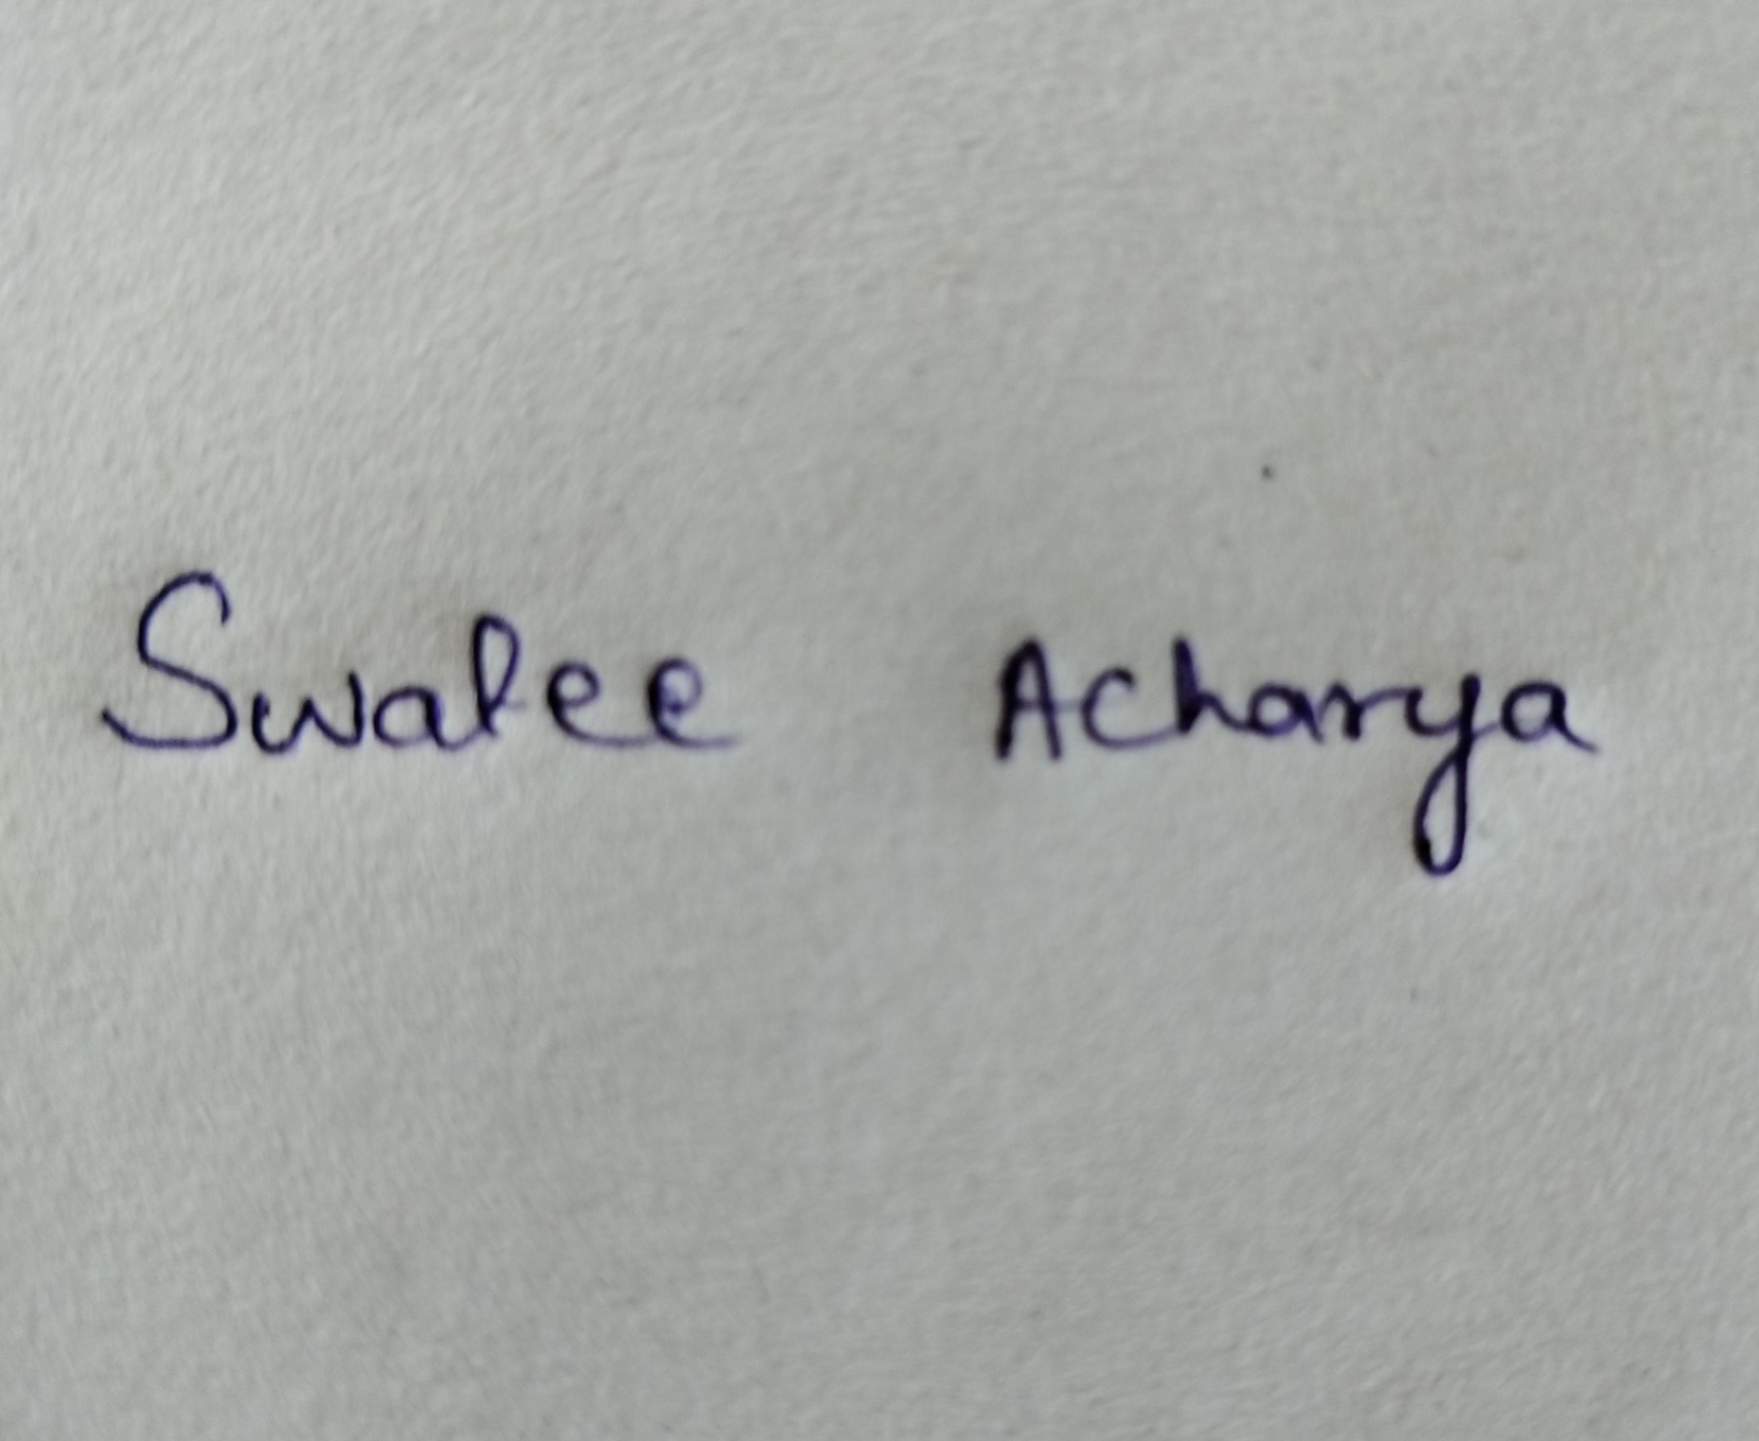 Swalee Acharya